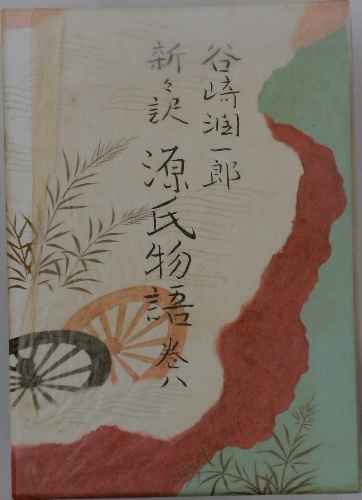 谷崎潤一郎
新々訳
源氏物語 巻八